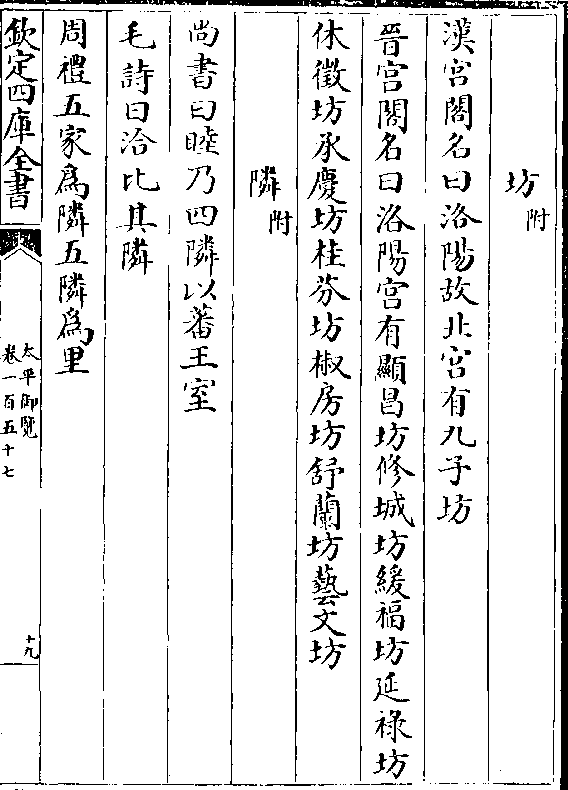 坊附
漢宮閣名曰洛陽故北宮有九子坊
晉宮閣名曰洛陽宮有顯昌坊修城坊緩福坊延祿坊
休徵坊承慶坊桂芬坊椒房坊舒蘭坊藝文坊
隣附
尚書曰睦乃四隣以蕃王室
毛詩曰洽比其隣
周禮五家為隣五隣為里
欽定四庫全書
太平御覽
卷一百五十七
十九